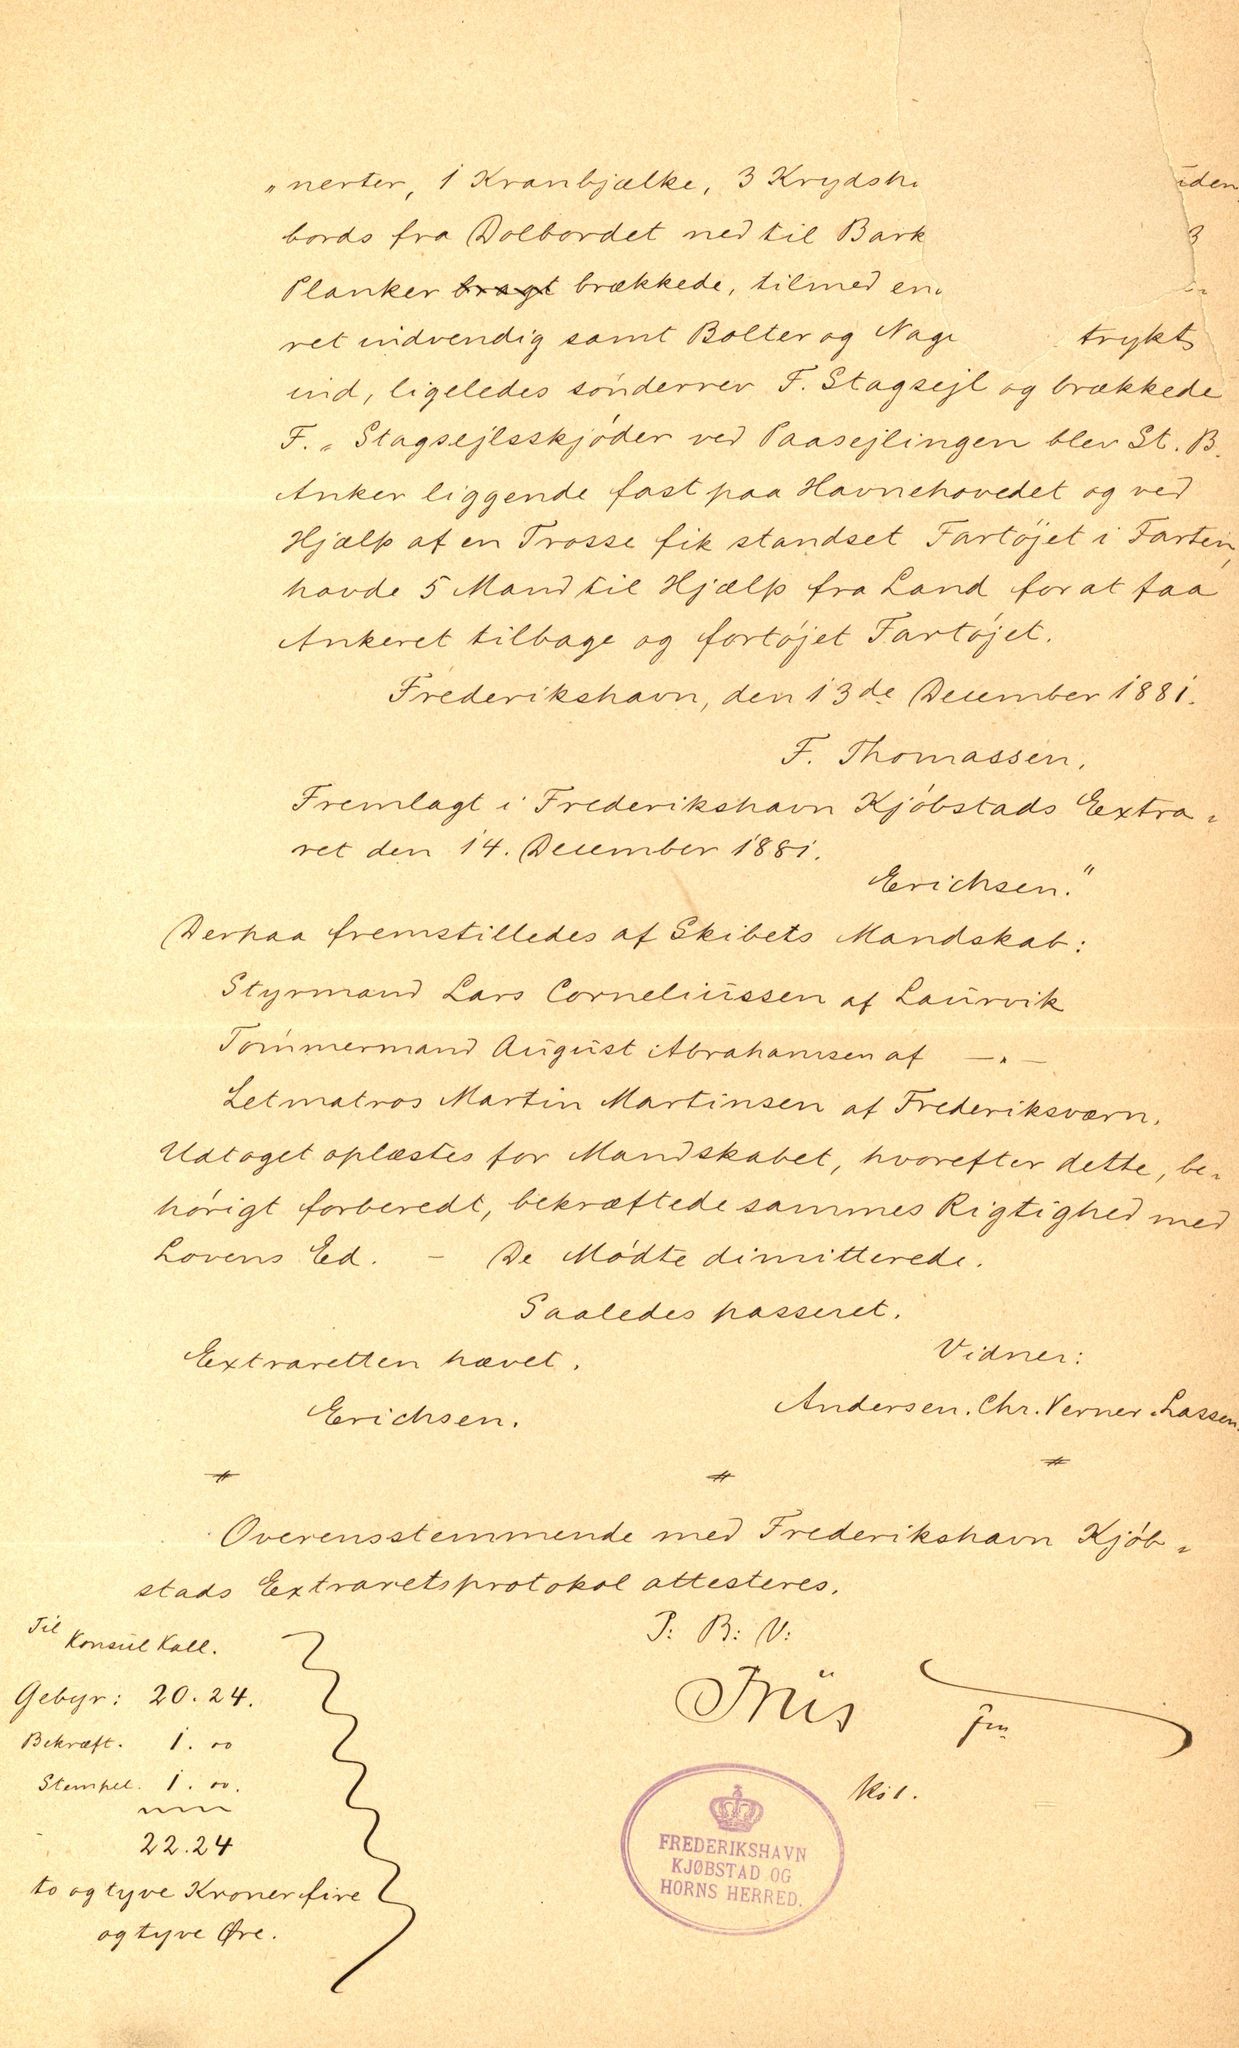 „nerter, 1 Kranbjælke, 3 Krydsh iden
bords fra Dolbordet ned til Bark 3
Planker bragt brækkede, tilmed en
ret indvendig samt Bolter og Nag trykt
ind, ligeledes sönderrev F. Stagsejl og brækkede
F. „ Stagsejlsskjöder ved Paasejlingen blev St. B.
Anker liggende fast paa Havnehovedet og ved
Hjælp af en Trosse fik standset Fartöjet i Farten,
havde 5 Mand til Hjælp fra Land for at faa
Ankeret tilbage og fortöjet Fartöjet.
Frederikshavn, den 13de December 1881.
F. Thomassen.
Fremlagt i Frederikshavn Kjöbstads Extra-
ret den 14. December 1881.
Erichsen."
Derpaa fremstilledes af Skibets Mandskab:
Styrmand Lars Corneliussen af Laurvik
Tömmermand August Abrahamsen af —„—
Letmatros Martin Martinsen af Frederiksværn.
Udtoget oplæstes for Mandskabet, hvorefter dette, be-
hörigt forberedt, bekræftede sammes Rigtighed med
Lovens Ed. – De Mödte dimitterede.
Saaledes passeret.
Extraretten hævet.
Vidner:
Erichsen.
Andersen. Chr. Verner Lassen.
Overensstemmende med Frederikshavn Kjöb-
stads Extraretsprotokol attesteres.
P: B: V:
Friis
fm
Kst.
FREDERIKSHAVN
KJØBSTAD OG
HORNS HERRED.
Til
Konsul Kall.
Gebyr: 20.24.
Bekræft. 1.00
Stempel. 1.00.
22.24
to og tyve Kroner fire
og tyve Øre.